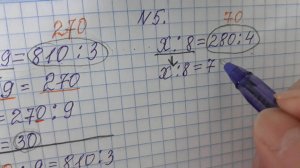 270
№5.
70
9 = 810 : 3
x : 8 = 280 : 4
9 = 270
x : 8 = 7
= 270 : 9
= 30
: 9 = 810 : 3